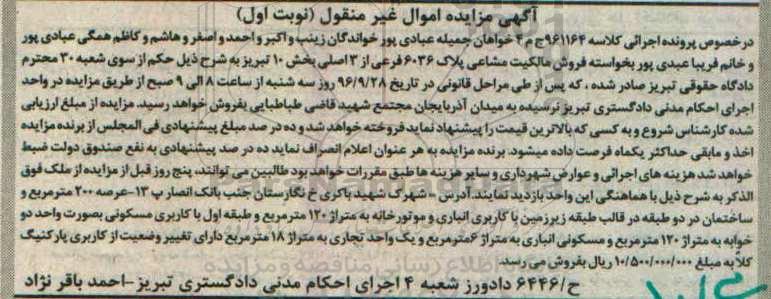 آگهی مزایده اموال غیر منقول (نوبت اول)
در خصوص پرونده اجرائی کلاسه ۹۶۱۱۶۴ج م۴ خواهان جمیله عبادی پور خواندگان زینب و اکبر و احمد و اصغر و هاشم و کاظم همگی عبادی پور
و خانم فریبا عبدی پور بخواسته فروش مالکیت مشاعی پلاک ۶۰۳۶ فرعی از ۳ اصلی بخش ۱۰ تبریز به شرح ذیل حکم از سوی شعبه ۳۰ محترم
دادگاه حقوقی تبریز صادر شده ، که پس از طی مراحل قانونی در تاریخ ۹۶/۹/۲۸ روز سه شنبه از ساعت ۸ الی ۹ صبح از طریق مزایده در واحد
اجرای احکام مدنی دادگستری تبریز نرسیده به میدان آذربایجان مجتمع شهید قاضی طباطبایی بفروش خواهد رسید. مزایده از مبلغ ارزیابی
شده کارشناس شروع و به کسی که بالاترین قیمت را پیشنهاد نماید فروخته خواهد شد و ده در صد مبلغ پیشنهادی فی المجلس از برنده مزایده
اخذ و مابقی حداکثر یکماه فرصت داده میشود. برنده مزایده به هر عنوان اعلام انصراف نماید ده در صد پیشنهادی به نفع صندوق دولت ضبط
خواهد شد هزینه های اجرائی و عوارض شهرداری و سایر هزینه ها طبق مقررات خواهد بود طالبین می توانند، پنج روز قبل از مزایده از ملک فوق
الذکر به شرح ذیل با هماهنگی این واحد بازدید نمایند. آدرس - شهرک شهید باکری خ نگارستان جنب بانک انصار پ ۱۳-عرصه ۲۰۰ مترمربع و
ساختمان در دو طبقه در قالب طبقه زیرزمین با کاربری انباری و موتورخانه به متراژ ۱۲۰ مترمربع و طبقه اول با کاربری مسکونی بصورت واحد دو
خوابه به متراژ ۱۲۰ مترمربع و مسکونی انباری به متراژ ۶مترمربع و یک واحد تجاری به متراژ ۱۸ مترمربع دارای تغییر وضعیت از کاربری پارکنیگ
کلاً به مبلغ ۱۰/۵۰۰/۰۰۰/۰۰۰ ریال بفروش می رسد.
ح/۶۴۴۶ دادورز شعبه ۴ اجرای احکام مدنی دادگستری تبریز-احمد باقر نژاد